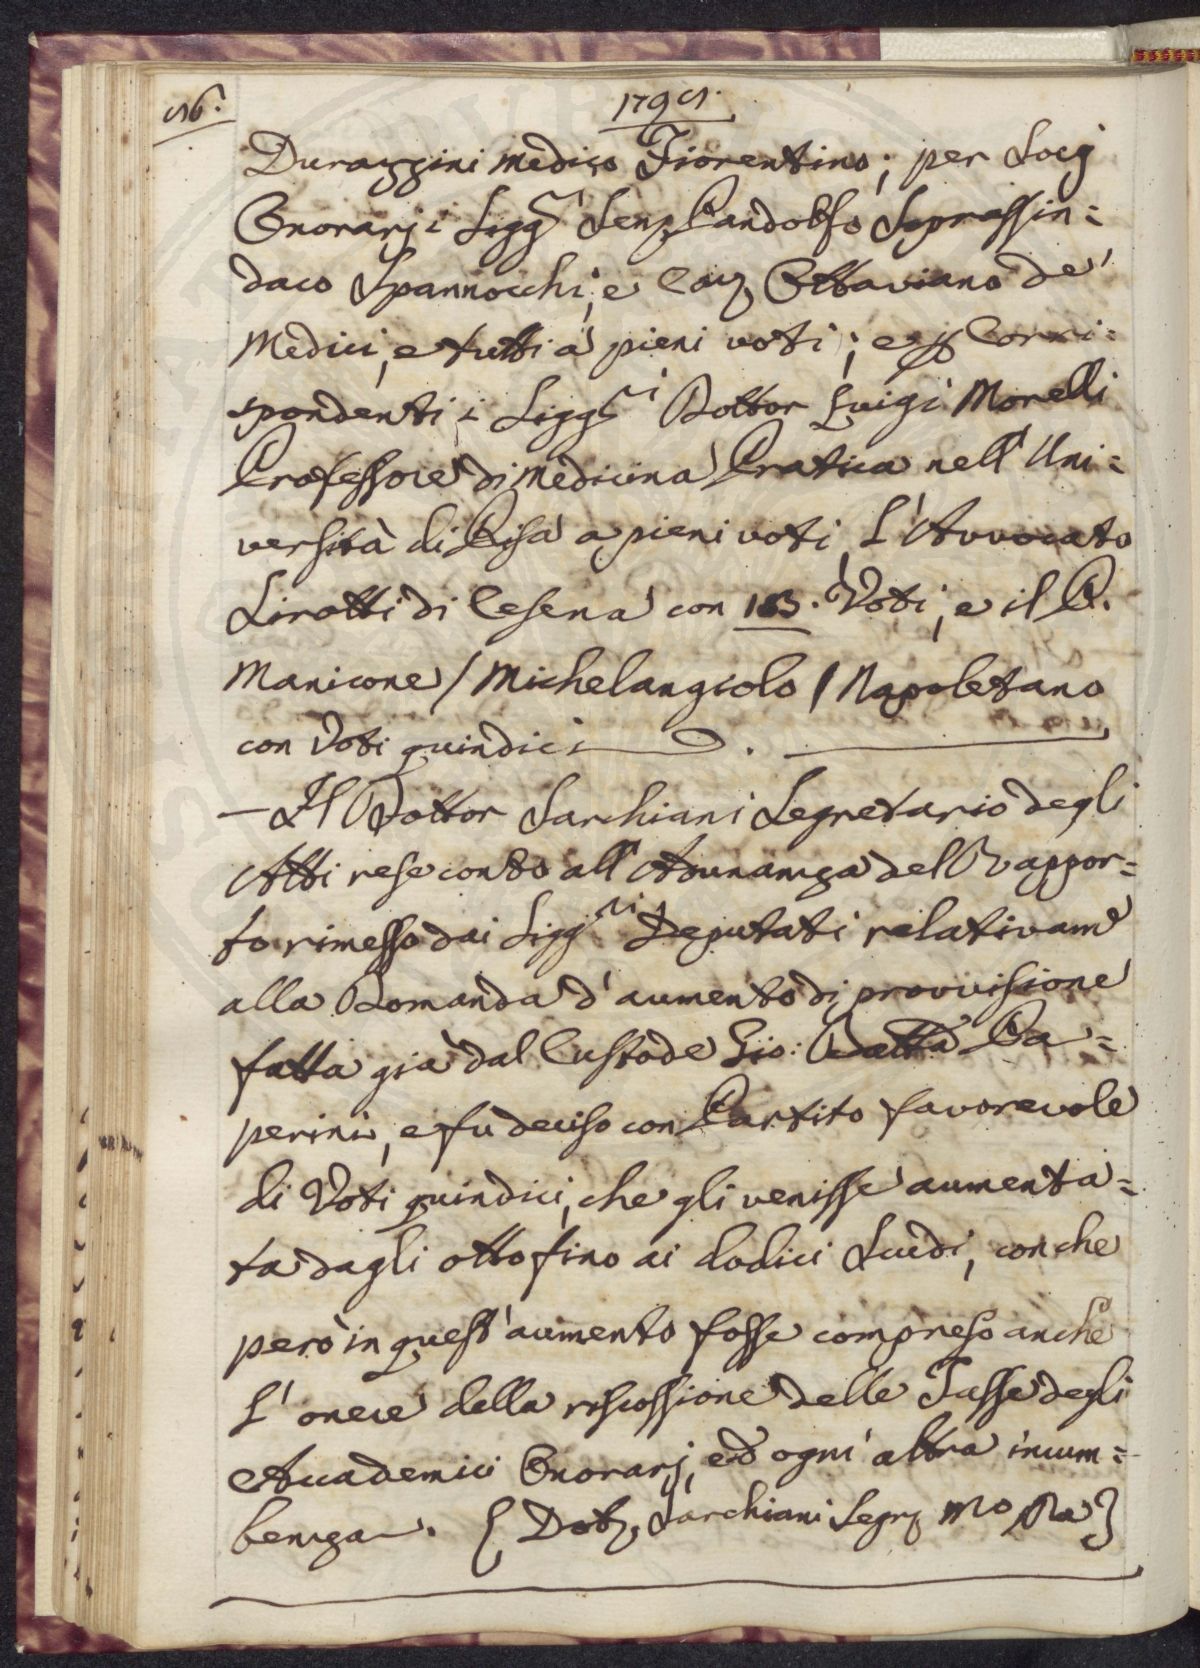 56.
1795.
Durazzini Medico Fiorentino; per Socj
Onorarj i Sigg.ri Sen. Pandolfo Soprassin=
daco Spannocchi, e Cav. Ottaviano de'
Medici, e tutti a pieni voti; e p Corri=
spondenti i Sigg.ri Dottor Luigi Morelli
Professore di Medicina Pratica nell' Uni=
versità di Pisa a pieni voti, L'Avvocato
Sirotti di Cesena con 13. Voti, e il P.
Manicone / Michelangiolo / Napoletano
con Voti quindici.
— Il Dottor Sarchiani Segretario degli
Atti rese conto all' Adunanza del Rappor=
to rimesso dai Sigg.ri Deputati relativam.e
alla Domanda d'aumento di provvisione
fatta già dal Custode Gio: Batta Pa=
perini, e fu deciso con Partito favorevole
di Voti quindici, che gli venisse aumenta=
ta dagli otto fino ai dodici Scudi, con che
però in quest' aumento fosse compreso anche
L' onere della riscossione delle Tasse degli
Accademici Onorarj, ed ogni altra incum=
benza. { Dott. Sarchiani Segr. Mo Pa }